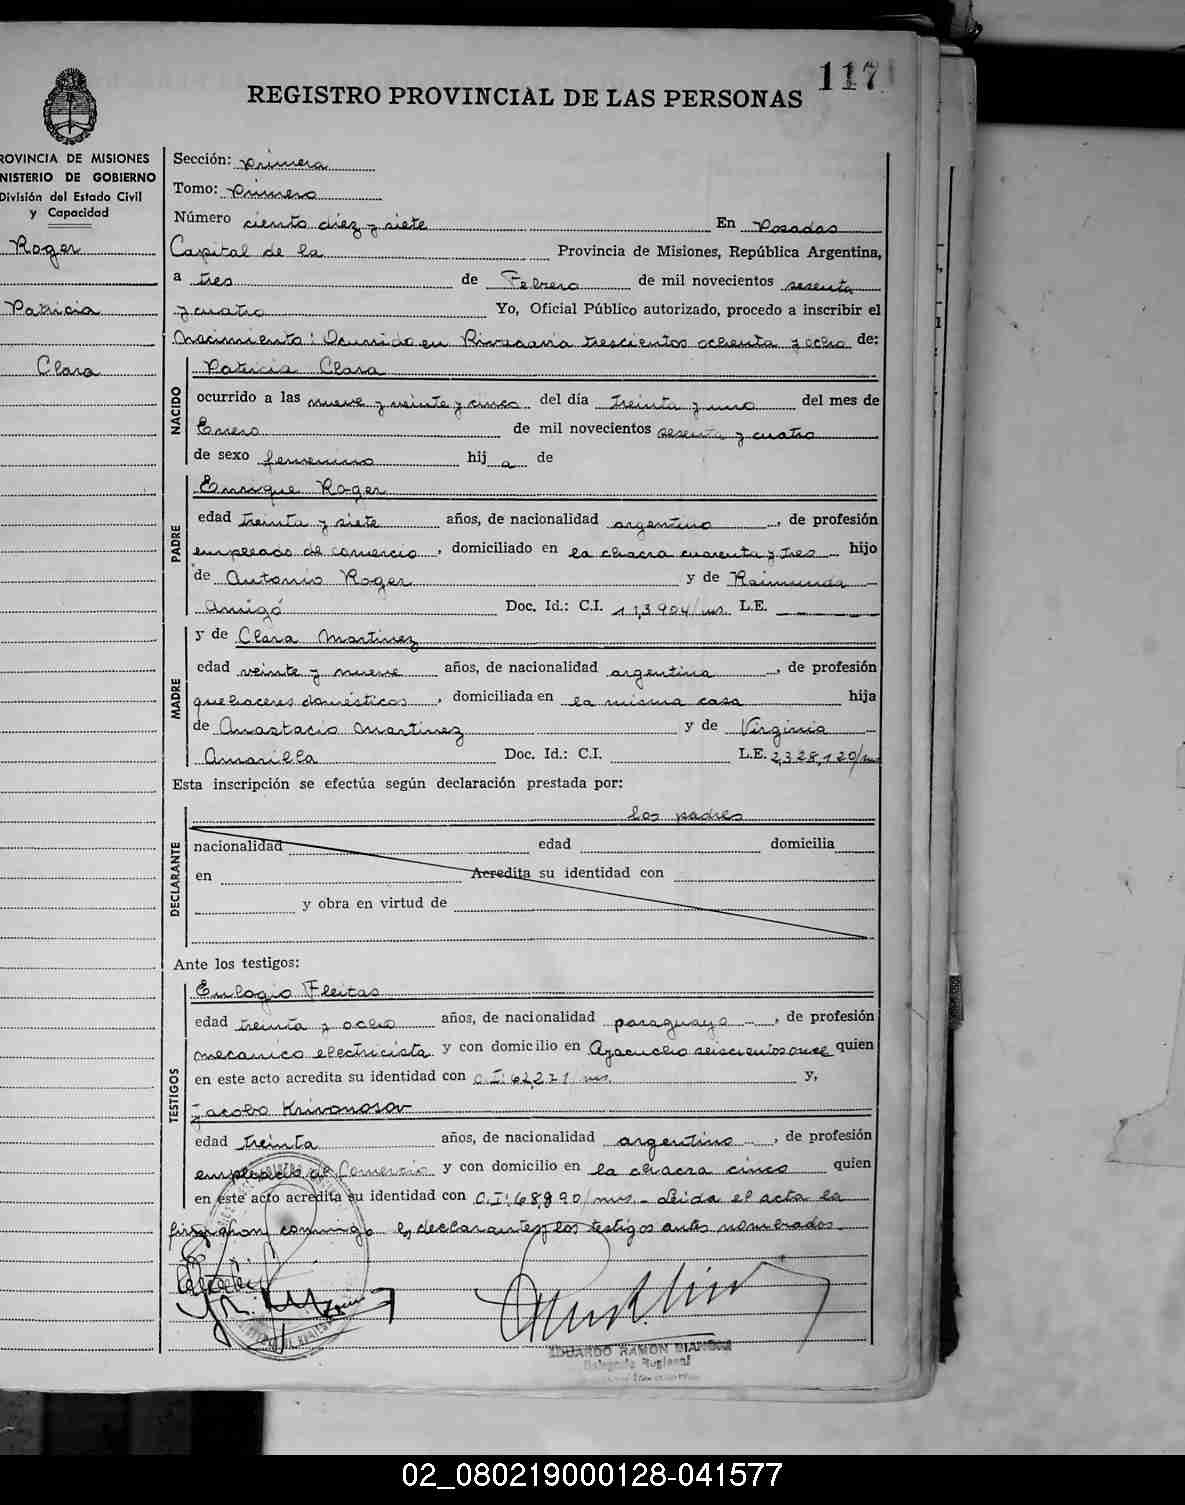 117
REGISTRO PROVINCIAL DE LAS PERSONAS
ROVINCIA DE MISIONES
NISTERIO DE GOBIERNO
División del Estado Civil
y Capacidad
Roger
Patricia
Clara
Sección: Primera
Tomo: Primero
Número ciento diez y siete En Posadas
Capital de la Provincia de Misiones, República Argentina,
a tres de Febrero de mil novecientos sesenta
y cuatro Yo, Oficial Público autorizado, procedo a inscribir el
Nacimiento: Ocurrido en Rivadavia trescientos ochenta y ocho de:
NACIDO
Patricia Clara
ocurrido a las nueve y veinte y cinco del día treinta y uno del mes de
Enero de mil novecientos sesenta y cuatro
de sexo femenino hija de
PADRE
Enrique Roger
edad treinta y siete años, de nacionalidad argentino, de profesión
empleado de comercio, domiciliado en la chacra cuarenta y tres hijo
de Antonio Roger y de Raimunda
Amigó Doc. Id.: C.I. 113.904/ms. L.E.
MADRE
y de Clara Martinez
edad veinte y nueve años, de nacionalidad argentina, de profesión
quehaceres domésticos, domiciliada en la misma casa hija
de Anastacio Martinez y de Virginia
Amarilla Doc. Id.: C.I. L.E. 2,328,120/ms
Esta inscripción se efectúa según declaración prestada por:
DECLARANTE
los padres
nacionalidad edad domicilia
en Acredita su identidad con
y obra en virtud de
Ante los testigos:
TESTIGOS
Eulogio Fleitas
edad treinta y ocho años, de nacionalidad paraguayo, de profesión
mecanico electricista y con domicilio en Ayacucho seiscientos once quien
en este acto acredita su identidad con C.I: 62,271/ms. y,
Jacobo Krivonosov
edad treinta años, de nacionalidad argentino, de profesión
empleado de Comercio y con domicilio en la chacra cinco quien
en este acto acredita su identidad con C.I: 68,890/ms. Leida el acta la
firman conmigo los declarantes y los testigos antes nombrados.
EDUARDO RAMON
Delegado Regional
02_080219000128-041577